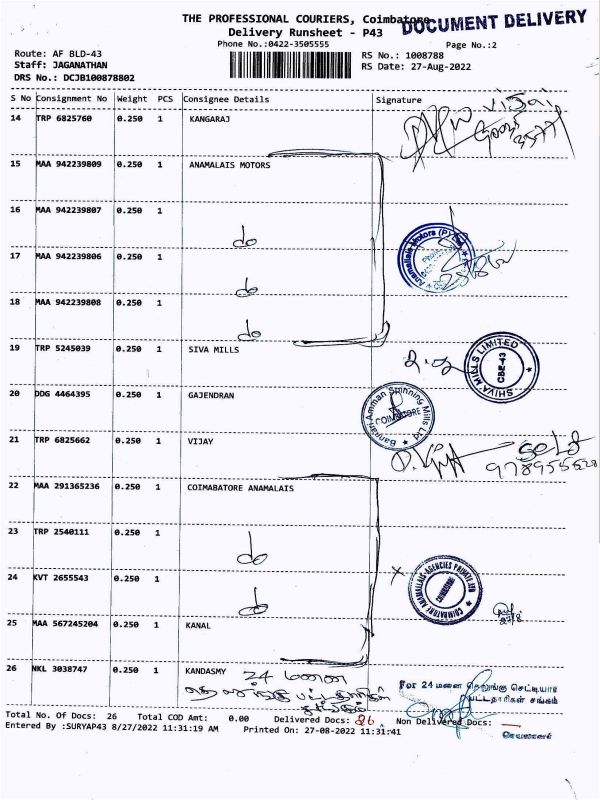 THE PROFESSIONAL COURIERS, Coimbatore
DOCUMENT DELIVERY
Delivery Runsheet - P43
Phone No.:0422-3505555
Page No.:2
Route: AF BLD-43
RS No.: 1008788
Staff: JAGANATHAN
RS Date: 27-Aug-2022
DRS No.: DCJB100878802
S No Consignment No Weight PCS Consignee Details Signature
14 TRP 6825760 0.250 1 KANGARAJ
15 MAA 942239809 0.250 1 ANAMALAIS MOTORS
16 MAA 942239807 0.250 1 do
17 MAA 942239806 0.250 1 do
Anamalais Motors (P)
18 MAA 942239808 0.250 1 do
19 TRP 5245039 0.250 1 SIVA MILLS
SHIVA MILLS LIMITED
CBE-43
20 DDG 4464395 0.250 1 GAJENDRAN
Bannari Amman Spinning Mills Ltd
COIMBATORE
21 TRP 6825662 0.250 1 VIJAY
Self
22 MAA 291365236 0.250 1 COIMABATORE ANAMALAIS
23 TRP 2540111 0.250 1 do
24 KVT 2655543 0.250 1 do
COIMBATORE ANAMALAIS AGENCIES PRIVATE LTD
COIMBATORE
25 MAA 567245204 0.250 1 KANAL
26 NKL 3038747 0.250 1 KANDASMY 24 மனை
For 24 மனை தெலுங்கு செட்டியார்
பட்டதாரிகள் சங்கம்
செயலாளர்
Total No. Of Docs: 26 Total COD Amt: 0.00 Delivered Docs: 26 Non Delivered Docs: —
Entered By :SURYAP43 8/27/2022 11:31:19 AM Printed On: 27-08-2022 11:31:41